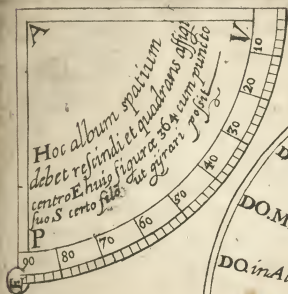 A
V
Hoc album spatium
debet rescindi et quadrans affigi
centro E huiꝰ figuræ 364 cum puncto
suo S certo filo ut gyrari possit
P
10
20
30
40
50
60
70
80
90
DO.M
DO.in A